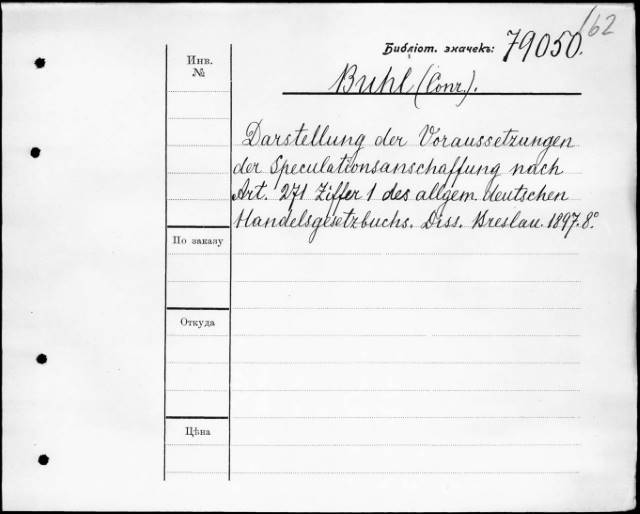 162
Библіот. значекъ: 79050.
Инв.
№
Buhl (Conr.).
Darstellung der Voraussetzungen
der Speculationsanschaffung nach
Art. 271 Ziffer 1 des allgem. deutschen
Handelsgesetzbuchs. Diss. Breslau. 1897. 8°
По заказу
Откуда
Цѣна